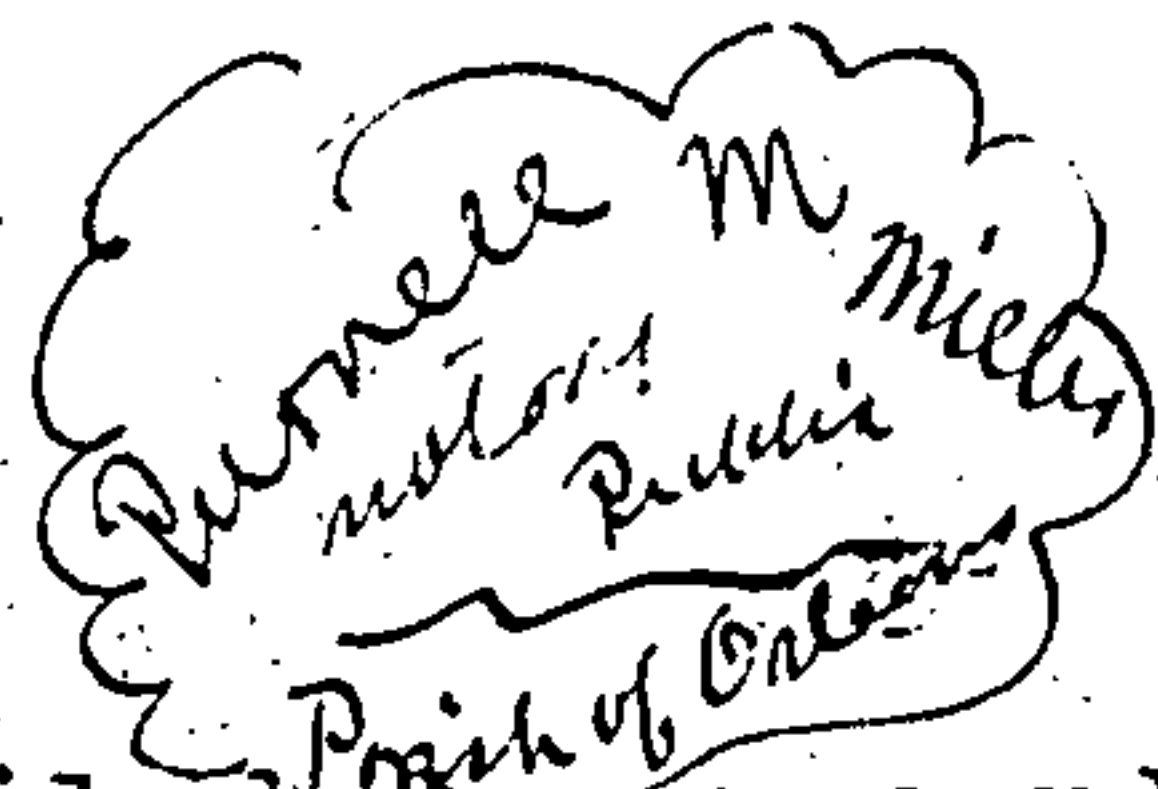 M Miller
Notary
Public
Parish of Orleans